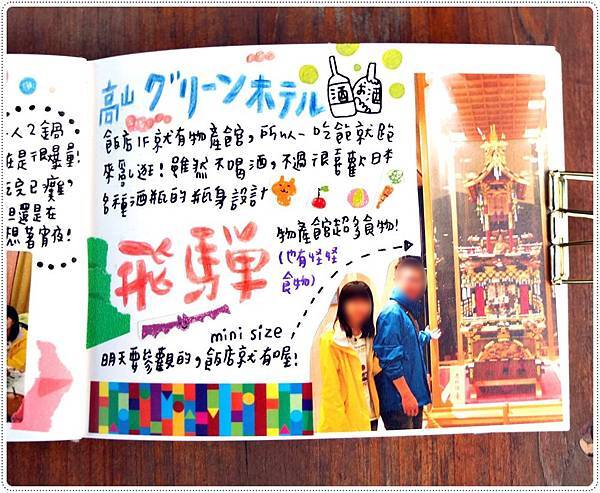 人2鍋
在是很爆量!
玩完已癱,
但還是在
想著宵夜!
高山グリーンホテル
酒
お酒
飯店1F就有物產館,所以一吃飽就跑
來亂逛!雖然不喝酒,不過很喜歡日本
各種酒瓶的瓶身設計
飛驒
物產館超多食物!
(也有怪怪
食物)
mini size
明天要參觀的,飯店就有喔!